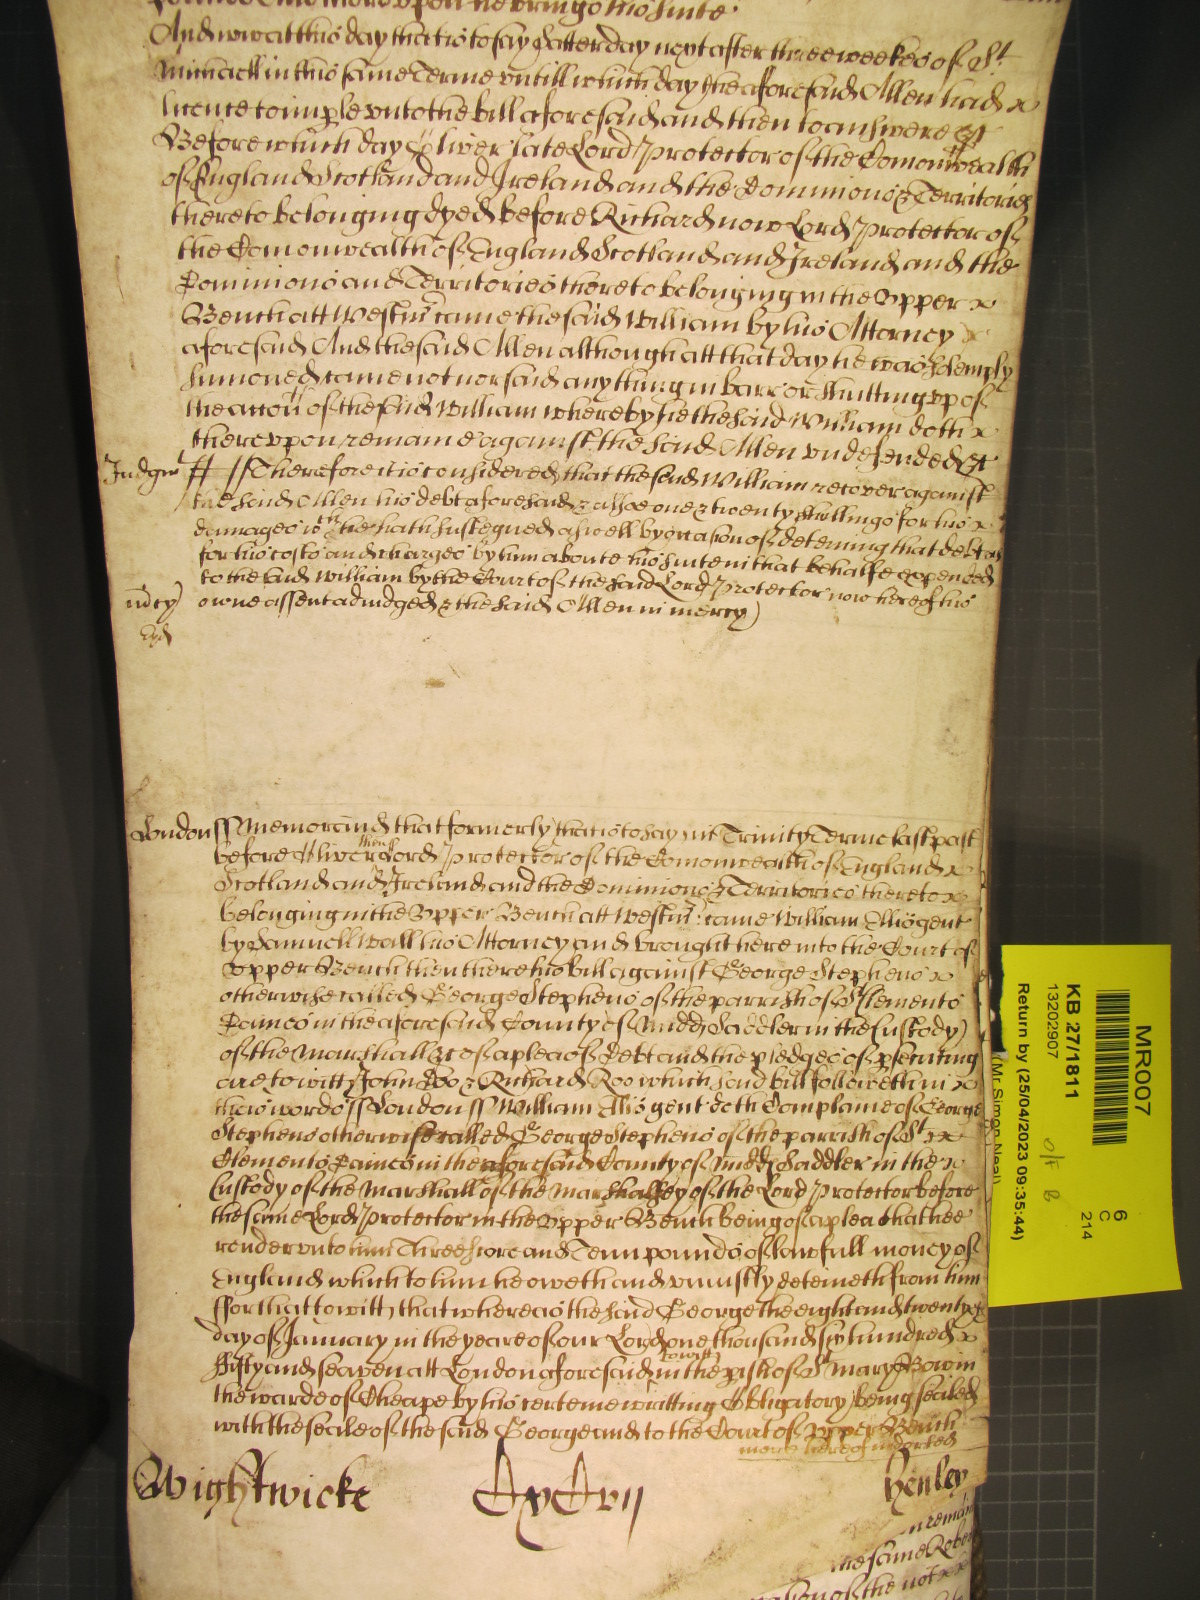 And now att this day that is to say Satterday next after three weekes of St
Michaell in this same Terme untill which day the aforesaid Allen had x
licence to imple unto the bill aforesaid and then to answere &c
Before which day Oliver late Lord Protector of the Comonwealth
of England Scotland and Ireland and the Dominions & Territories
thereto belonging dyed before Richard now Lord Protector of
the Comonwealth of England Scotland and Ireland and the
Dominions and Territories thereto belonging in the Upper x
Bench att Westmr came the said William by his Attorney x
aforesaid And the said Allen although att that day he was solemply
sumoned came not nor said any thing in barr or shutting up of
the accon of the said William whereby he the said William doth x
thereuppon remaine against the said Allen undefended &c
Judgmt ff // Therefore it is considered that the said William recover against
the said Allen his debt aforesaid & alsoe one & twenty shillings for his x
damages wch he hath susteyned aswell by occasion of deteining that debt as
for his costs and charges by him aboute his suite in that behalfe expended
to the said William by the Court of the said Lord Protector now here of his
mcy owne assent adiudged & the said Allen in mercy
London ss Memorand that formerly that is to say in Trinity Terme last past
before Oliver then Lord Protector of the Comonwealth of England x
Scotland and Ireland and the Dominions & Territories thereto x
belonging in the Upper Bench att Westmr came William Ellis gent
by Samuell Wall his Attorney and brought here into the Court of
Upper Bench then there his bill against George Stephens x
otherwise called George Stephens of the parrish of St Clements
Danes in the aforesaid County of Midd Saddler in the Custody
of the Marshall &c of a plea of Debt and the pledges of psecuting
are to witt John Doo & Richard Roo which said bill followeth in x
theis words ss London ss William Ellis gent doth Complaine of George
Stephens otherwise called George Stephens of the parrish of St x
Clements Danes in the aforesaid County of Midd Saddler in the x
Custody of the Marshall of the Marshalsey of the Lord Protector before
the same Lord Protector in the Upper Bench being of a plea that hee
render unto him Threescore and Tenn pounds of lawfull money of
England which to him he oweth and uniustly deteineth from him
ffor that to witt that whereas the said George the eight and twenty
day of January in the yeare of our Lord one thousand six hundred x
fifty and seaven att London aforesaid to witt in the pish of St Mary Bow in
the warde of Cheape by his certeine writting Obligatory being sealed
with the seale of the said George and to the Court of Upper Bench
now here
Wightwicke
Henley
n remain
the same Robe
of the not
MR007
KB 27/1811
13202907
Return by (25/04/2023 09:35:44)
(Mr Simon Neal)
6
C
214